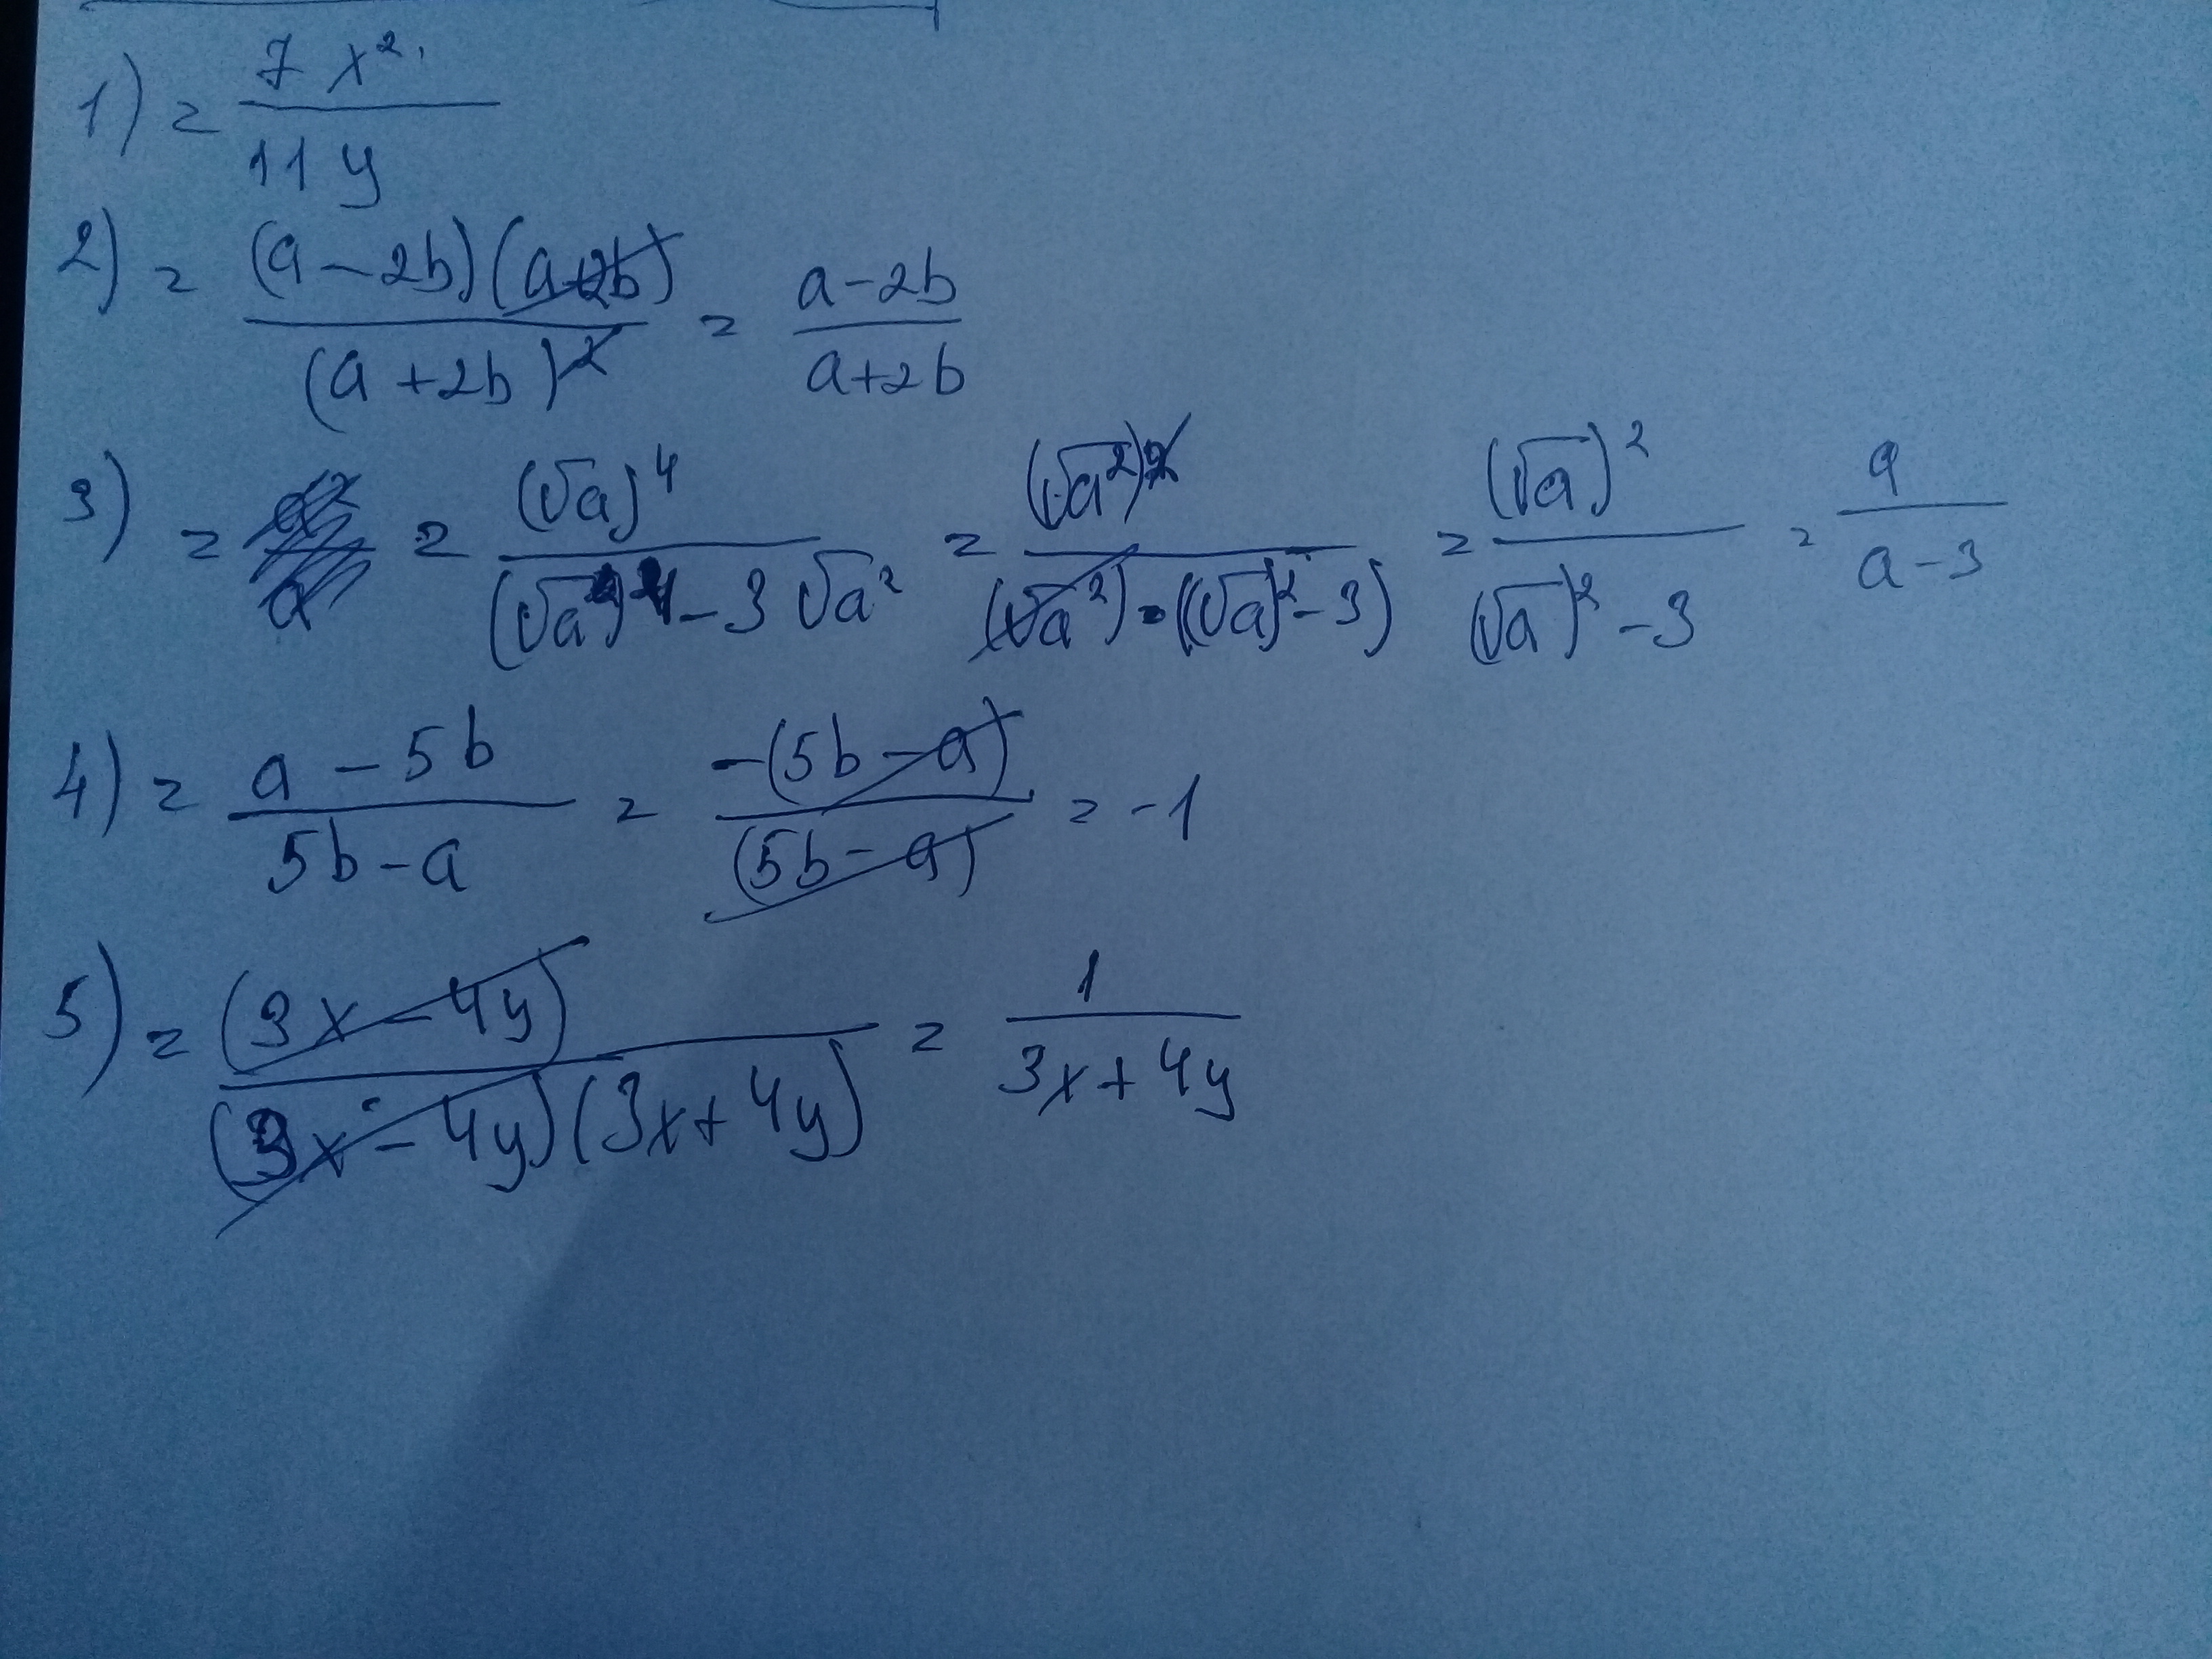 1) = 7x² / 11y
2) = (a-2b)(a+2b) / (a+2b)² = a-2b / a+2b
3) = = (√a)⁴ / (√a)⁴ - 3√a² = (√a²)² / (√a²)·((√a)² - 3) = (√a)² / (√a)² - 3 = a / a-3
4) = a-5b / 5b-a = -(5b-a) / (5b-a) = -1
5) = (3x-4y) / (3x-4y)(3x+4y) = 1 / 3x+4y